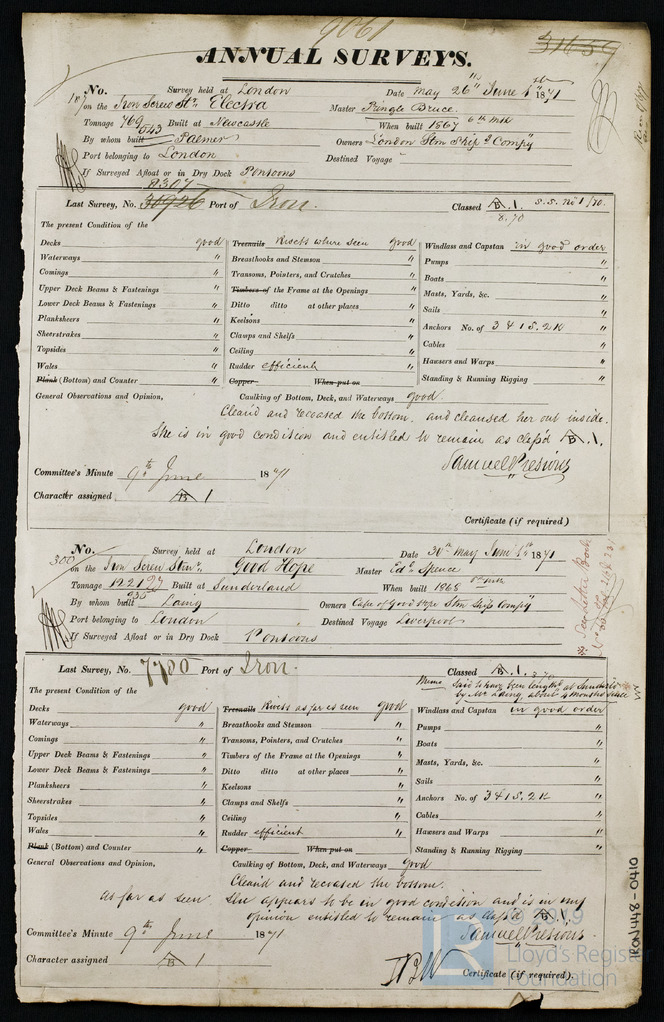 9061
31659
ANNUAL SURVEYS.
No. Survey held at London Date May 26th June 1st 1871
on the Iron Screw Str. Electra Master Pringle Bruce.
Tonnage 769 543 Built at Newcastle When built 1867 6th mo
By whom built Palmer Owners London Stm Ship Compy
Port belonging to London Destined Voyage
If Surveyed Afloat or in Dry Dock Pontoons
8307
Last Survey, No. 30926 Port of Iron. Classed A.1. S.S. No 1/70.
8.70
The present Condition of the
Decks good Treenails Rivets where seen good Windlass and Capstan in good order
Waterways " Breasthooks and Stemson " Pumps "
Comings " Transoms, Pointers, and Crutches " Boats "
Upper Deck Beams & Fastenings " Timbers of the Frame at the Openings " Masts, Yards, &c. "
Lower Deck Beams & Fastenings " Ditto ditto at other places " Sails "
Planksheers " Keelsons " Anchors No. of 3 4 1 S. 2 K "
Sheerstrakes " Clamps and Shelfs " Cables "
Topsides " Ceiling " Hawsers and Warps "
Wales " Rudder efficient " Standing & Running Rigging "
Plank (Bottom) and Counter " Copper When put on
General Observations and Opinion, Caulking of Bottom, Deck, and Waterways good
Clean'd and recoated the bottom. and cleansed her out inside.
She is in good condition and entitled to remain as class'd A.1.
Samuel Presious
Committee's Minute 9th June 1871
Character assigned A 1
Certificate (if required)
No. Survey held at London Date 30th May June 1st 1871
300
on the Iron Screw Stmr. Good Hope Master Edd Spence
Tonnage 1221 935 Built at Sunderland When built 1868
By whom built Laing Owners Cape of Good Hope Stm Ship Compy
Port belonging to London Destined Voyage Liverpool
If Surveyed Afloat or in Dry Dock Pontoons
Last Survey, No. 7780 Port of Iron. Classed A.1.
Memo Said to have been lengthd at Sunderland by Mr Laing, about 4 months since
The present Condition of the
Decks good Treenails Rivets as far as seen good Windlass and Capstan in good order
Waterways " Breasthooks and Stemson " Pumps "
Comings " Transoms, Pointers, and Crutches " Boats "
Upper Deck Beams & Fastenings " Timbers of the Frame at the Openings " Masts, Yards, &c. "
Lower Deck Beams & Fastenings " Ditto ditto at other places " Sails "
Planksheers " Keelsons " Anchors No. of 3 4 1 S. 2 K "
Sheerstrakes " Clamps and Shelfs " Cables "
Topsides " Ceiling " Hawsers and Warps "
Wales " Rudder efficient " Standing & Running Rigging "
Plank (Bottom) and Counter " Copper When put on
General Observations and Opinion, Caulking of Bottom, Deck, and Waterways good
Clean'd and recoated the bottom.
as far as seen. She appears to be in good condition and is in my
opinion entitled to remain as class'd A.1.
Samuel Presious
Committee's Minute 9th June 1871
Character assigned A 1
Certificate (if required).
RON448-0410
© 2019
Lloyd's Register
Foundation